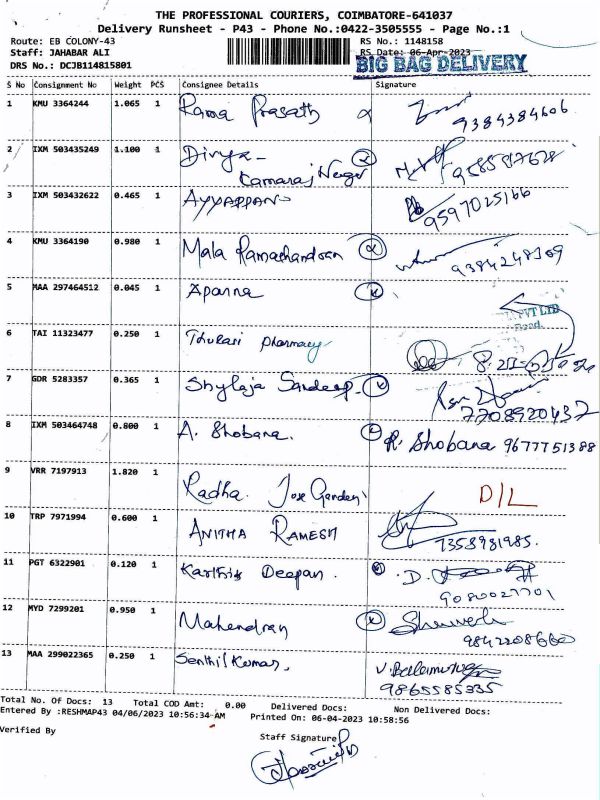 THE PROFESSIONAL COURIERS, COIMBATORE-641037
Delivery Runsheet - P43 - Phone No.:0422-3505555 - Page No.:1
Route: EB COLONY-43
RS No.: 1148158
Staff: JAHABAR ALI
RS Date: 06-Apr-2023
DRS No.: DCJB114815801
BIG BAG DELIVERY
S No Consignment No Weight PCS Consignee Details Signature
1 KMU 3364244 1.065 1 Rama Prasath 9384384606
2 IXM 503435249 1.100 1 Divya- Kamaraj Nagar
3 IXM 503432622 0.465 1 AYYAPPAN 9597025166
4 KMU 3364190 0.980 1 Mala Ramachandran 9384248309
5 MAA 297464512 0.045 1 Aparna
PVT LTD
6 TAI 11323477 0.250 1 Thulasi pharmacy
7 GDR 5283357 0.365 1 Shylaja Sandeep 7708920437
8 IXM 503464748 0.800 1 A. Shobana. R. Shobana 9677751388
9 VRR 7197913 1.820 1 Radha Jose Garden D/L
10 TRP 7971994 0.600 1 ANITHA RAMESH 7358981985.
11 PGT 6322901 0.120 1 Karthik Deepan. D. 9080027701
12 MYD 7299201 0.950 1 Mahendran 9842208660
13 MAA 299022365 0.250 1 Senthil Kumar. 9865585335
Total No. Of Docs: 13 Total COD Amt: 0.00 Delivered Docs: Non Delivered Docs:
Entered By :RESHMAP43 04/06/2023 10:56:34 AM Printed On: 06-04-2023 10:58:56
Verified By
Staff Signature